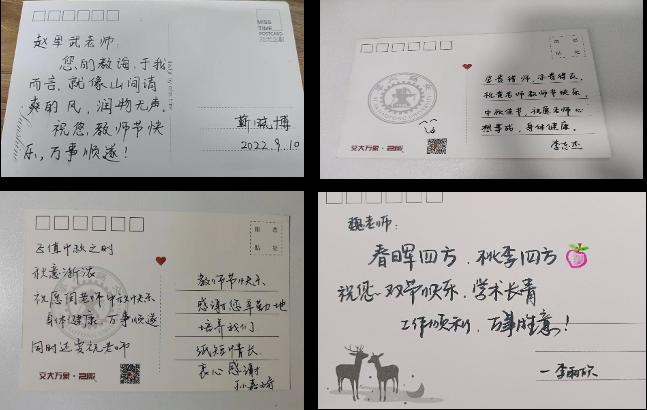 MISS
TIME
POSTCARD
赵军武老师:
您的教诲,于我
而言,就像山间清
爽的风,润物无声。
祝您教师节快
乐,万事顺遂!
靳晓博
2022.9.10
亦是良师,亦是益友,
祝贵老师教师节快乐,
中秋佳节,祝愿老师心
想事成,身体健康。
李志杰
交大万象·
正值中秋之时
秋意渐浓
祝愿闫老师中秋快乐
身体健康 万事顺遂
同时还要祝老师
教师节快乐
感谢您辛勤地
培养我们
纸短情长
衷心感谢
交大万象·
魏老师:
春晖四方,桃李四方
祝您双节快乐,学术长青
工作顺利,万事胜意!
—李雨欣